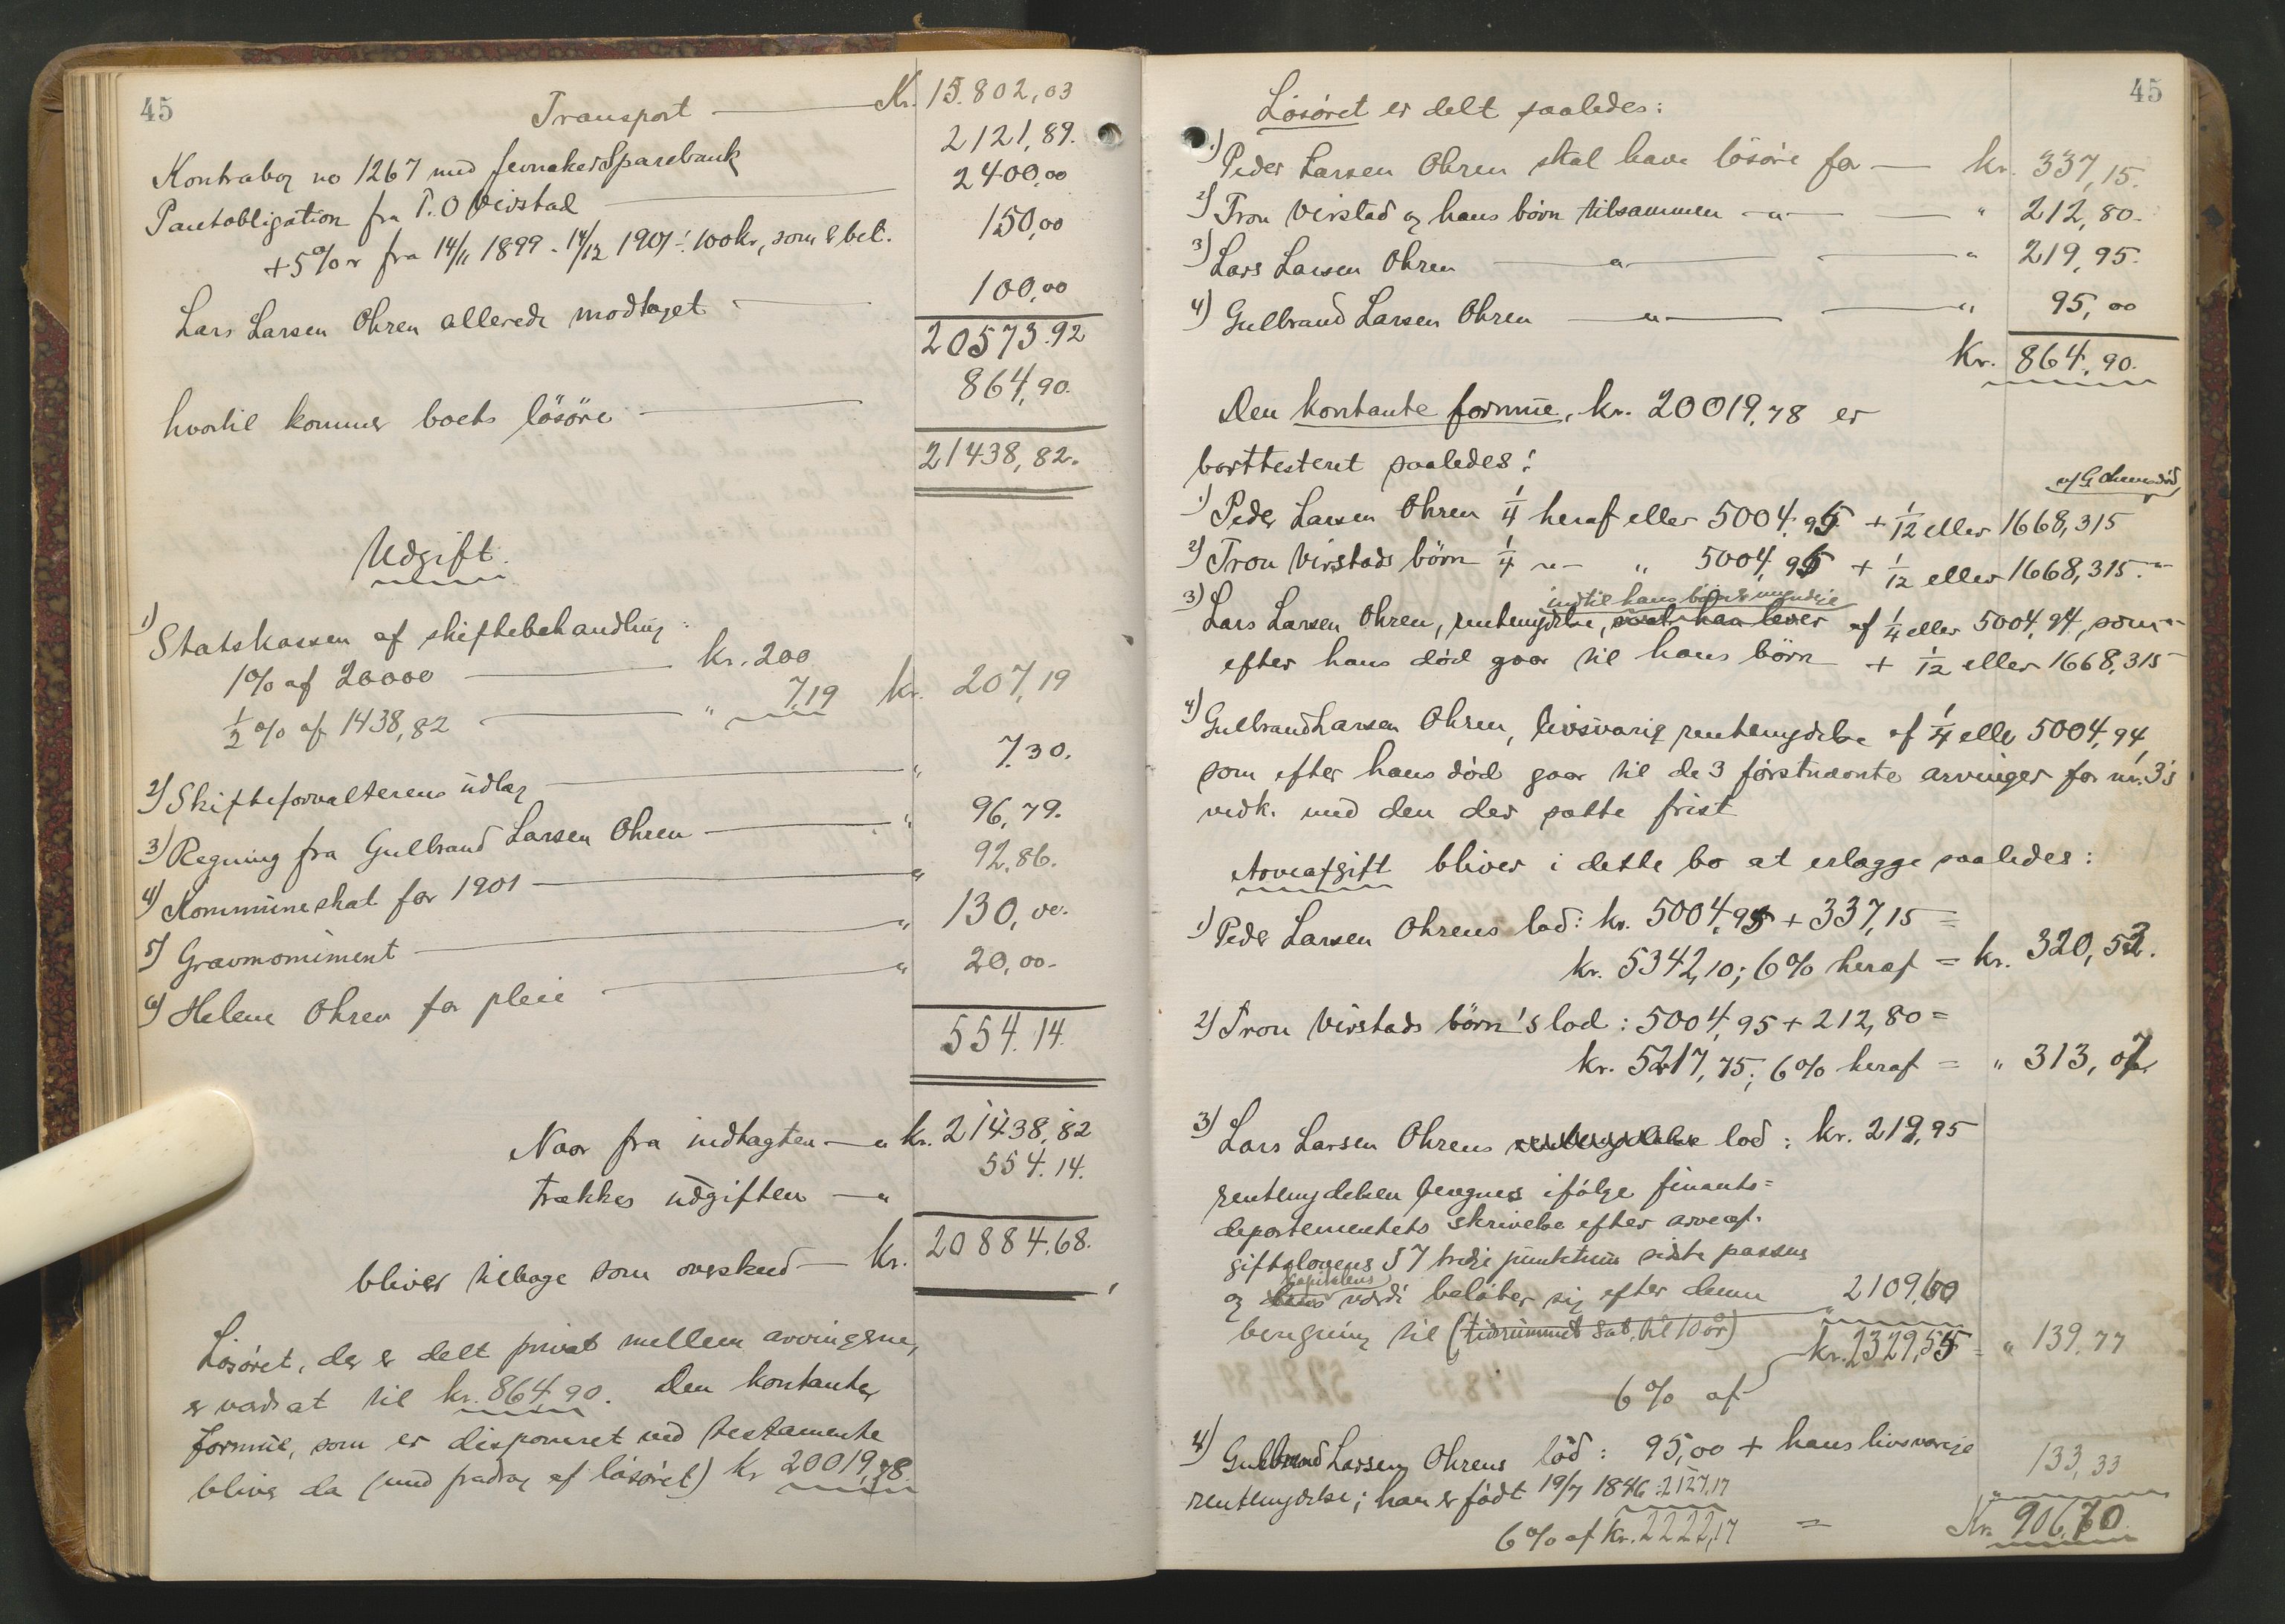 45
Transport — Kr. 15.802,03
Kontrabog no 1267 med Jevnaker Sparebank 2121,89.
Pantobligation fra T. O Virstad — 2400,00
+ 5% r fra 14/11 1899 - 14/12 1901 ÷ 100 kr, som er bet. 150,00
Lars Larsen Ohren allerede modtaget — 100,00
20573.92
hvortil kommer boets lösöre — 864,90.
21438,82.
Udgift.
1) Statskassen af skiftebehandling:
1% af 20000 — kr. 200
½% af 1438,82 — " 7,19 kr. 207,19
2) Skifteforvalterens udlæg — " 7.30.
3) Regning fra Gulbrand Larsen Ohren — " 96,79.
4) Kommuneskat for 1901 — " 92.86.
5) Gravmoniment — " 130,00.
6) Helene Ohren for pleie — " 20,00-
554.14.
Naar fra indtagten — " kr. 21438,82
trækkes udgiften — " 554.14.
bliver tilbage som overskud — kr. 20884.68.
Lösöret, der er delt privat mellem arvingerne,
er værdsat til kr. 864,90. Den kontante
formue, som er disponeret ved testamente
bliver da (med fradrag af lösöret) kr 20019,78.
45
Lösöret er delt saaledes:
1) Peder Larsen Ohren skal have lösöre for — kr. 337,15.
2) Tron Virstad og hans börn tilsammen — " — " 212,80.
3) Lars Larsen Ohren — " — " 219,95.
4) Gulbrand Larsen Ohren — " — " 95,00
kr. 864,90.
Den kontante formue, kr. 20019,78 er
borttesteret saaledes:
v/ G Ohrens död
1) Peder Larsen Ohren ¼ heraf eller 5004,95 + 1/12 eller 1668,315
2) Tron Virstads börn ¼ — " — " 5004,95 + 1/12 eller 1668,315. "
indtil hans börn er myndige
3) Lars Larsen Ohren, rentenydelse, saalænge han lever af ¼ eller 5004,94, som
efter hans död gaar til hans börn + 1/12 eller 1668,315
4) Gulbrand Larsen Ohren, livsvarig rentenydelse af ¼ eller 5004,94,
som efter hans död gaar til de 3 förstnævnte arvinger for nr. 3's
vedk. med den der satte frist
Arveafgift bliver i dette bo at erlægge saaledes:
1) Peder Larsen Ohrens lod: kr. 5004,95 + 337,15 =
kr. 5342,10; 6% heraf = kr. 320,52.
2) Tron Virstads börn's lod: 5004,95 + 212,80 =
kr. 5217,75; 6% heraf = " 313,07
3) Lars Larsen Ohrens rentenydelse lod: kr. 219,95
rentenydelsen beregnes ifölge finants=
departementets skrivelse efter arveaf-
giftslovens § 7 tredie punktum sidste passus
kapitalens
og dens værdi belöber sig efter denne " 2109,60
beregning til (tidsrummet sat til 10 år) kr. 2329,55 = " 139,77
6% af
4) Gulbrand Larsen Ohrens lod: 95,00 + hans livsvarige
rentenydelse; han er födt 19/7 1846: 2127,17 133,33
6% af kr. 2222,17 = Kr. 906,70